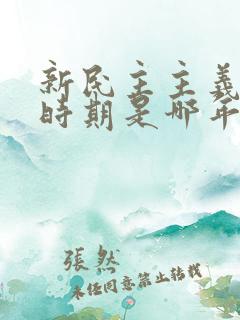 新民主主義
時期是哪年
張然
未经同意禁止转载